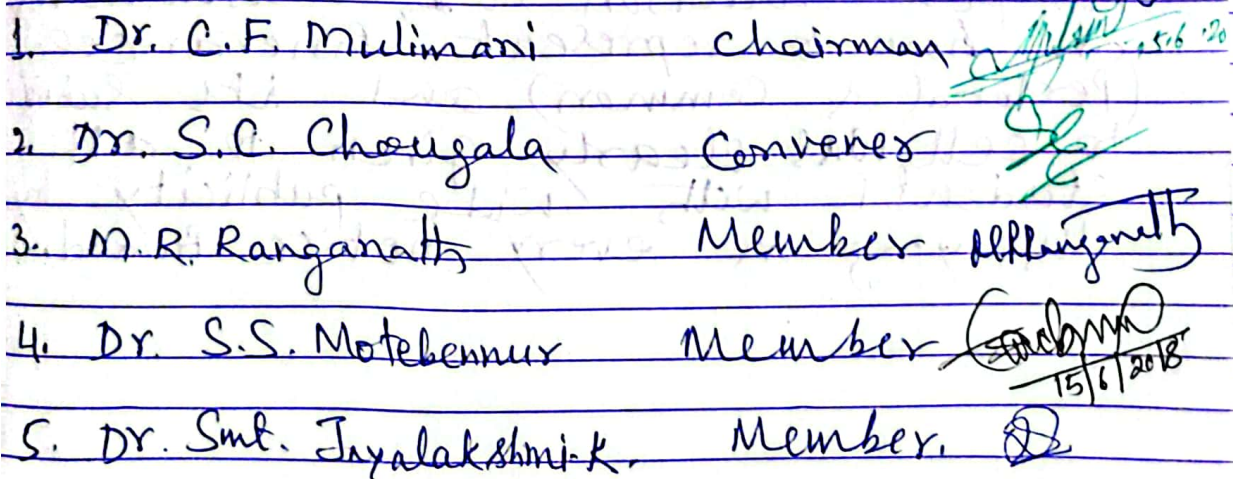 1. Dr. C.F. Mulimani Chairman
2. Dr. S.C. Chougala Convener
3. M.R. Ranganath Member MRRanganath
4. Dr. S.S. Motebennur Member 15/6/2018
5. Dr. Smt. Jayalakshmi.K. Member.